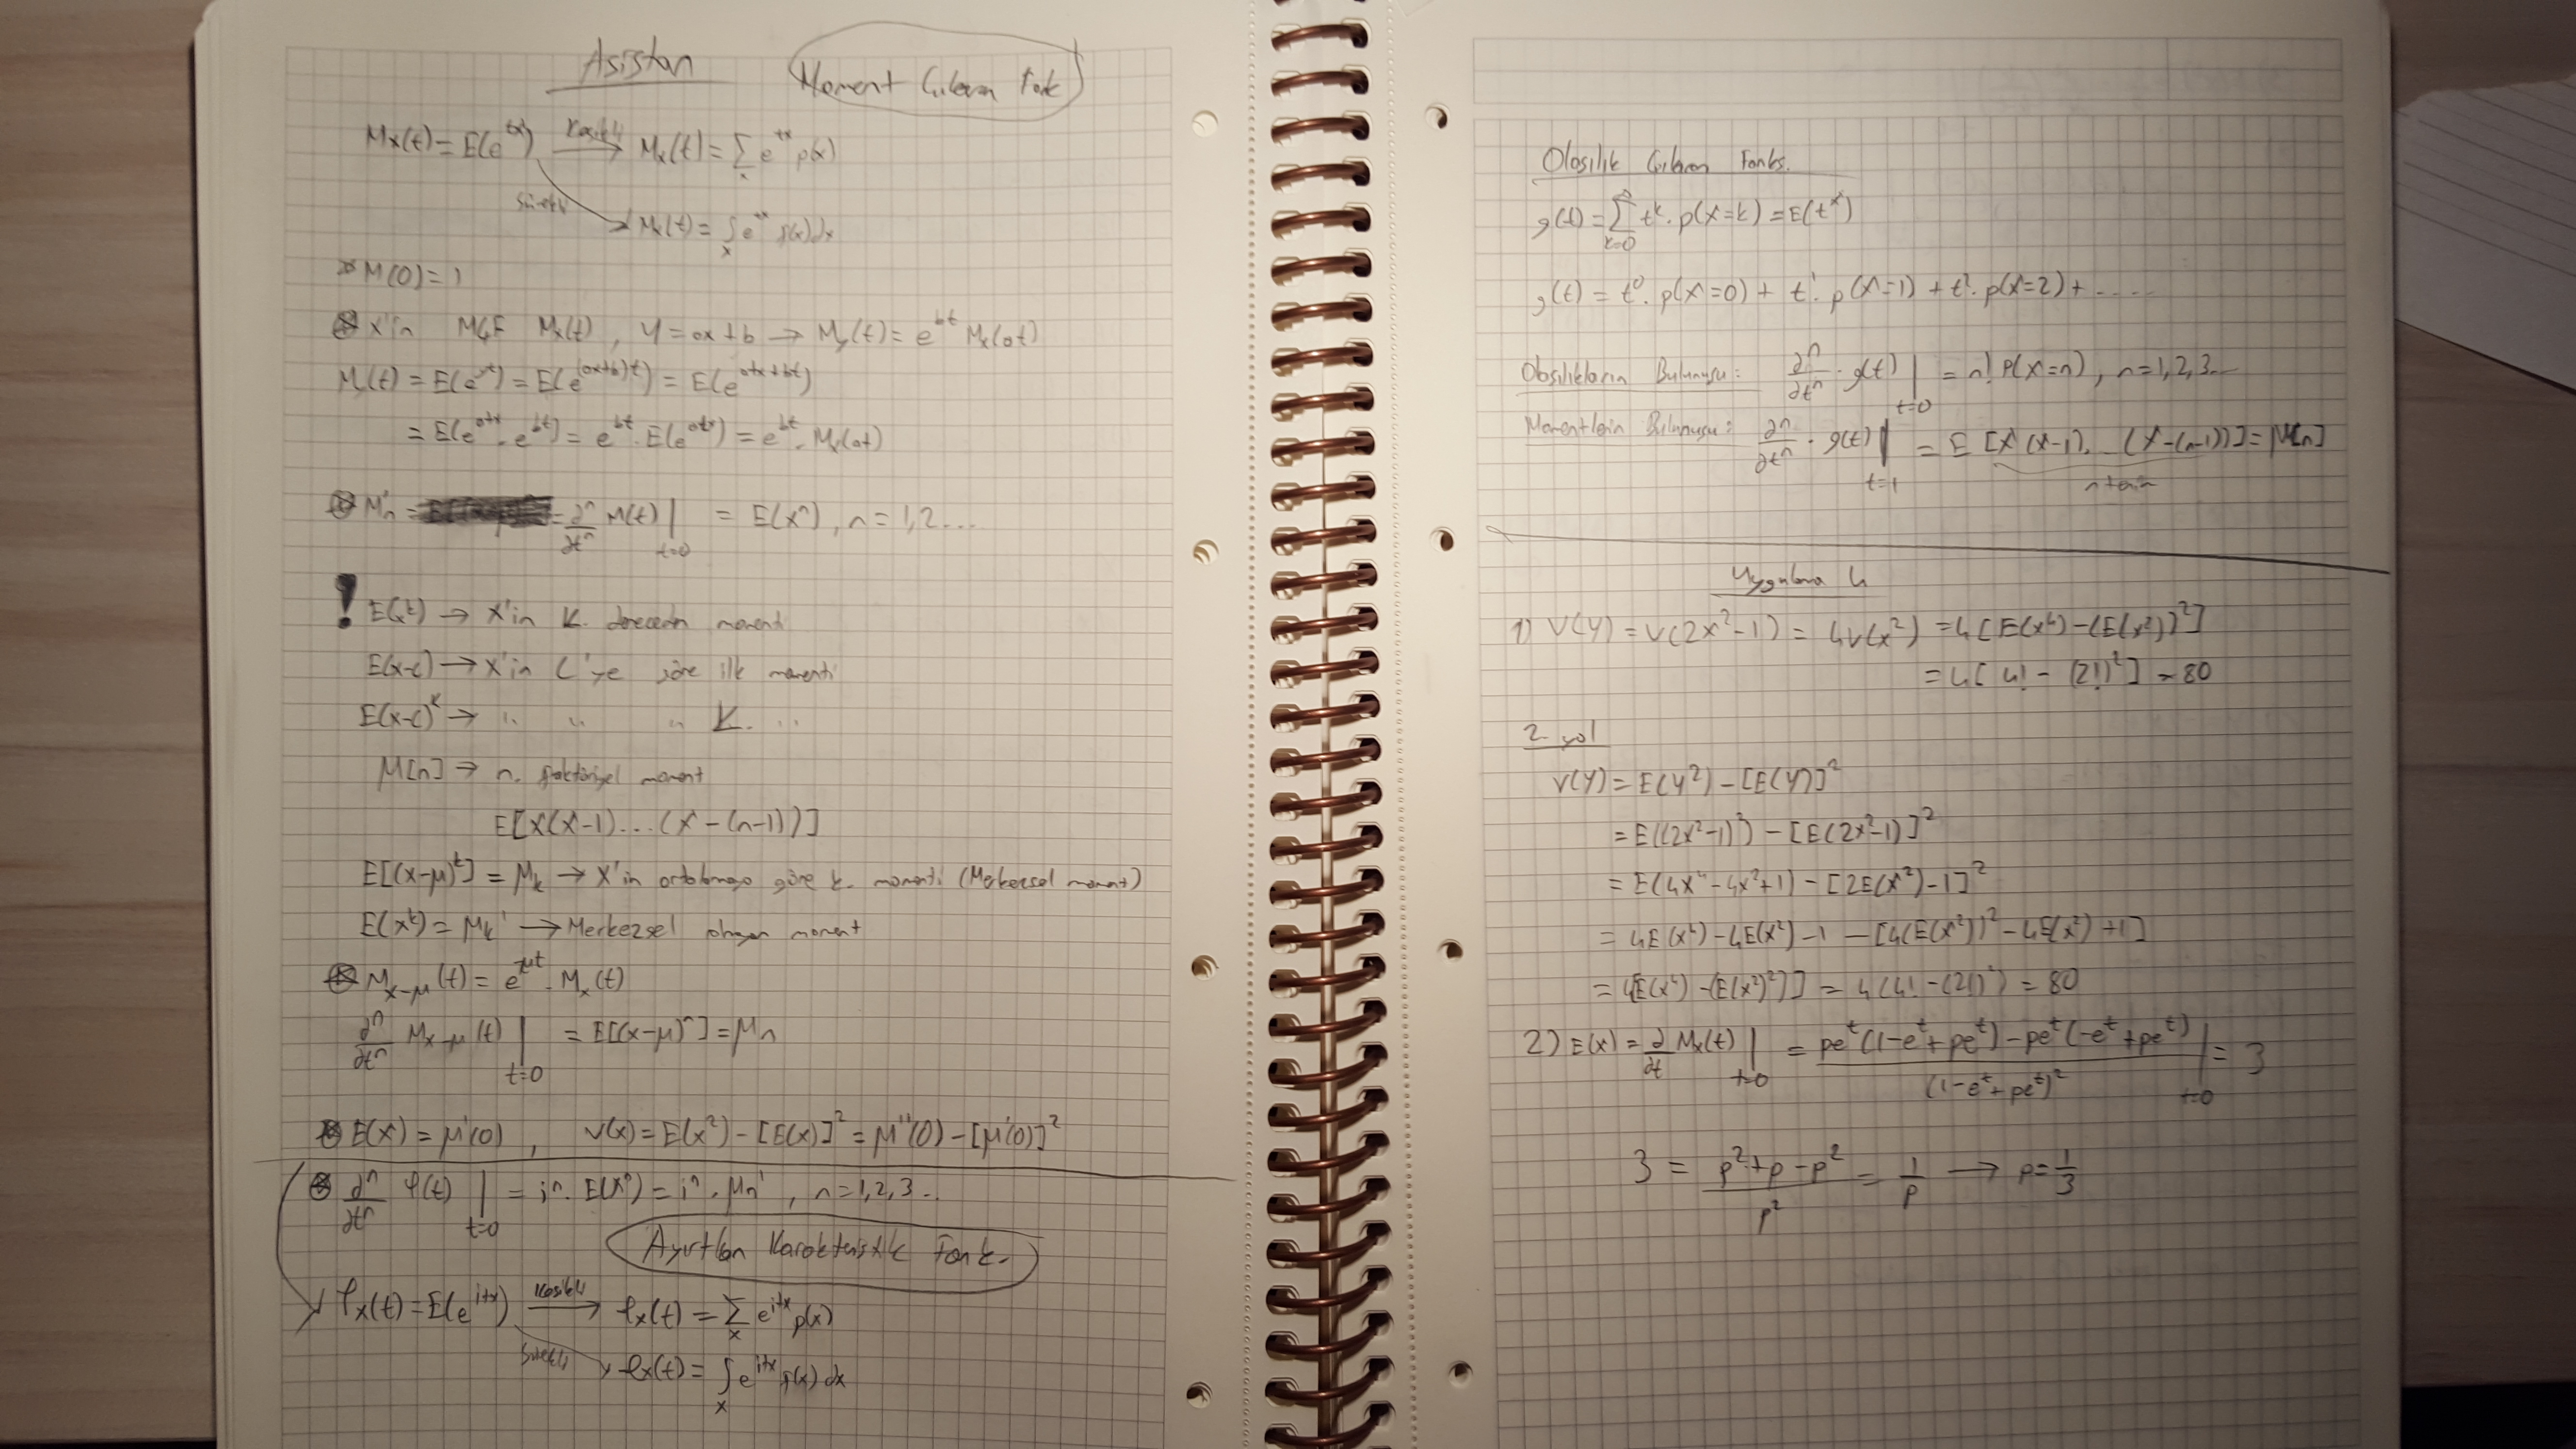 Asistan
Moment Çıkaran Fonk
Mx(t) = E(e^tx) Kesikli → Mx(t) = Σ_x e^tx p(x)
Sürekli → Mx(t) = ∫_x e^tx f(x)dx
* M(0) = 1
⊛ X'in MÇF Mx(t), Y = ax + b → My(t) = e^bt Mx(at)
My(t) = E(e^yt) = E(e^(ax+b)t) = E(e^atx+bt)
= E(e^atx . e^bt) = e^bt . E(e^atx) = e^bt . Mx(at)
⊛ M'n = = ∂^n/∂t^n M(t) |t=0 = E(x^n), n = 1,2....
! E(x^k) → X'in k. dereceden momenti
E(x-c) → X'in C'ye göre ilk momenti
E(x-c)^k → " " " k. "
μ[n] → n. faktöriyel moment
E[X(X-1)...(X-(n-1))]
E[(x-μ)^k] = μk → X'in ortalamaya göre k. momenti (Merkezsel moment)
E(x^k) = μk' → Merkezsel olmayan moment
⊛ M_x-μ(t) = e^-μt . Mx(t)
∂^n/∂t^n M_x-μ(t) |t=0 = E[(x-μ)^n] = μn
⊛ E(X) = μ'(0), V(x) = E(x²) - [E(X)]² = μ''(0) - [μ'(0)]²
⊛ ∂^n/∂t^n φ(t) |t=0 = i^n . E(X^n) = i^n . μn', n = 1,2,3..
Karakteristik Fonk.
φx(t) = E(e^itx) Kesikli → φx(t) = Σ_x e^itx p(x)
Sürekli → φx(t) = ∫_x e^itx f(x) dx
Olasılık Çıkaran Fonks.
g(t) = Σ_k=0^∞ t^k . p(x=k) = E(t^x)
g(t) = t^0 . p(X=0) + t^1 . p(X=1) + t^2 . p(X=2) + .....
Olasılıkların Bulunuşu: ∂^n/∂t^n . g(t) |t=0 = n! P(X=n), n=1,2,3...
Momentlerin Bulunuşu: ∂^n/∂t^n . g(t) |t=1 = E [X(X-1)...(X-(n-1))] = μ[n]
n tane
Uygulama 4
1) V(Y) = V(2x²-1) = 4V(x²) = 4[E(x⁴) - (E(x²))²]
= 4[4! - (2!)²] = 80
2. yol
V(Y) = E(Y²) - [E(Y)]²
= E((2x²-1)²) - [E(2x²-1)]²
= E(4x⁴ - 4x² + 1) - [2E(x²) - 1]²
= 4E(x⁴) - 4E(x²) - 1 - [4(E(x²))² - 4E(x²) + 1]
= 4[E(x⁴) - (E(x²)²)] = 4(4! - (2!)²) = 80
2) E(x) = ∂/∂t Mx(t) |t=0 = pe^t(1-e^t+pe^t) - pe^t(-e^t+pe^t) / (1-e^t+pe^t)² |t=0 = 3
3 = p²+p-p² / p² = 1/p → p = 1/3